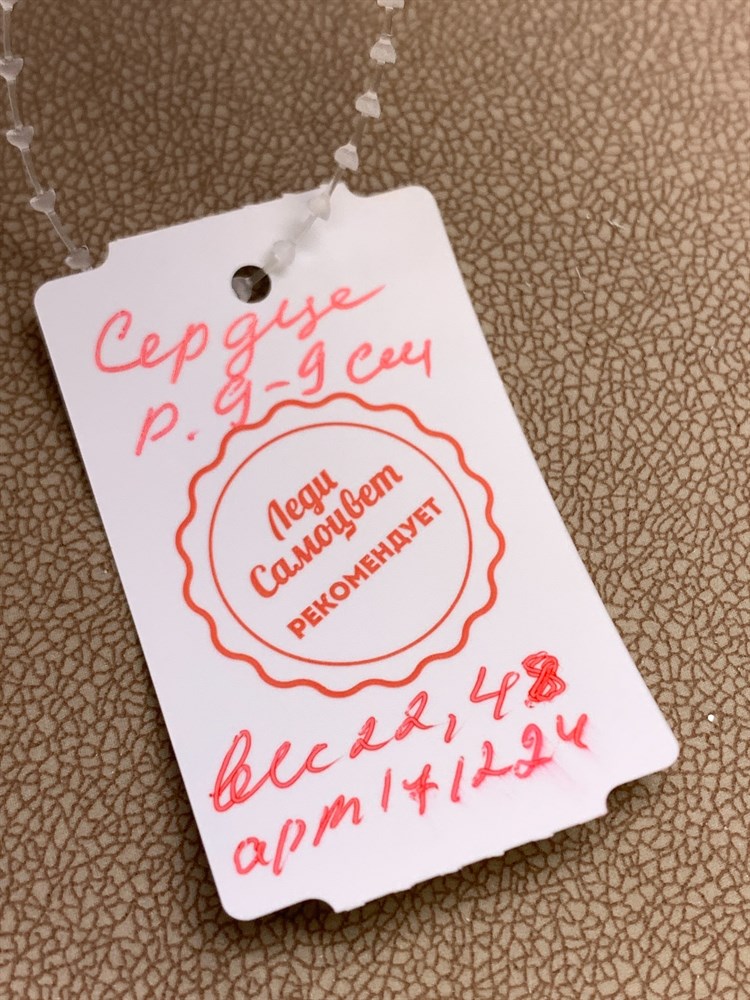 Сердце
р. 9-9 см
Леди
Самоцвет
РЕКОМЕНДУЕТ
вес 22,48
арт 171224